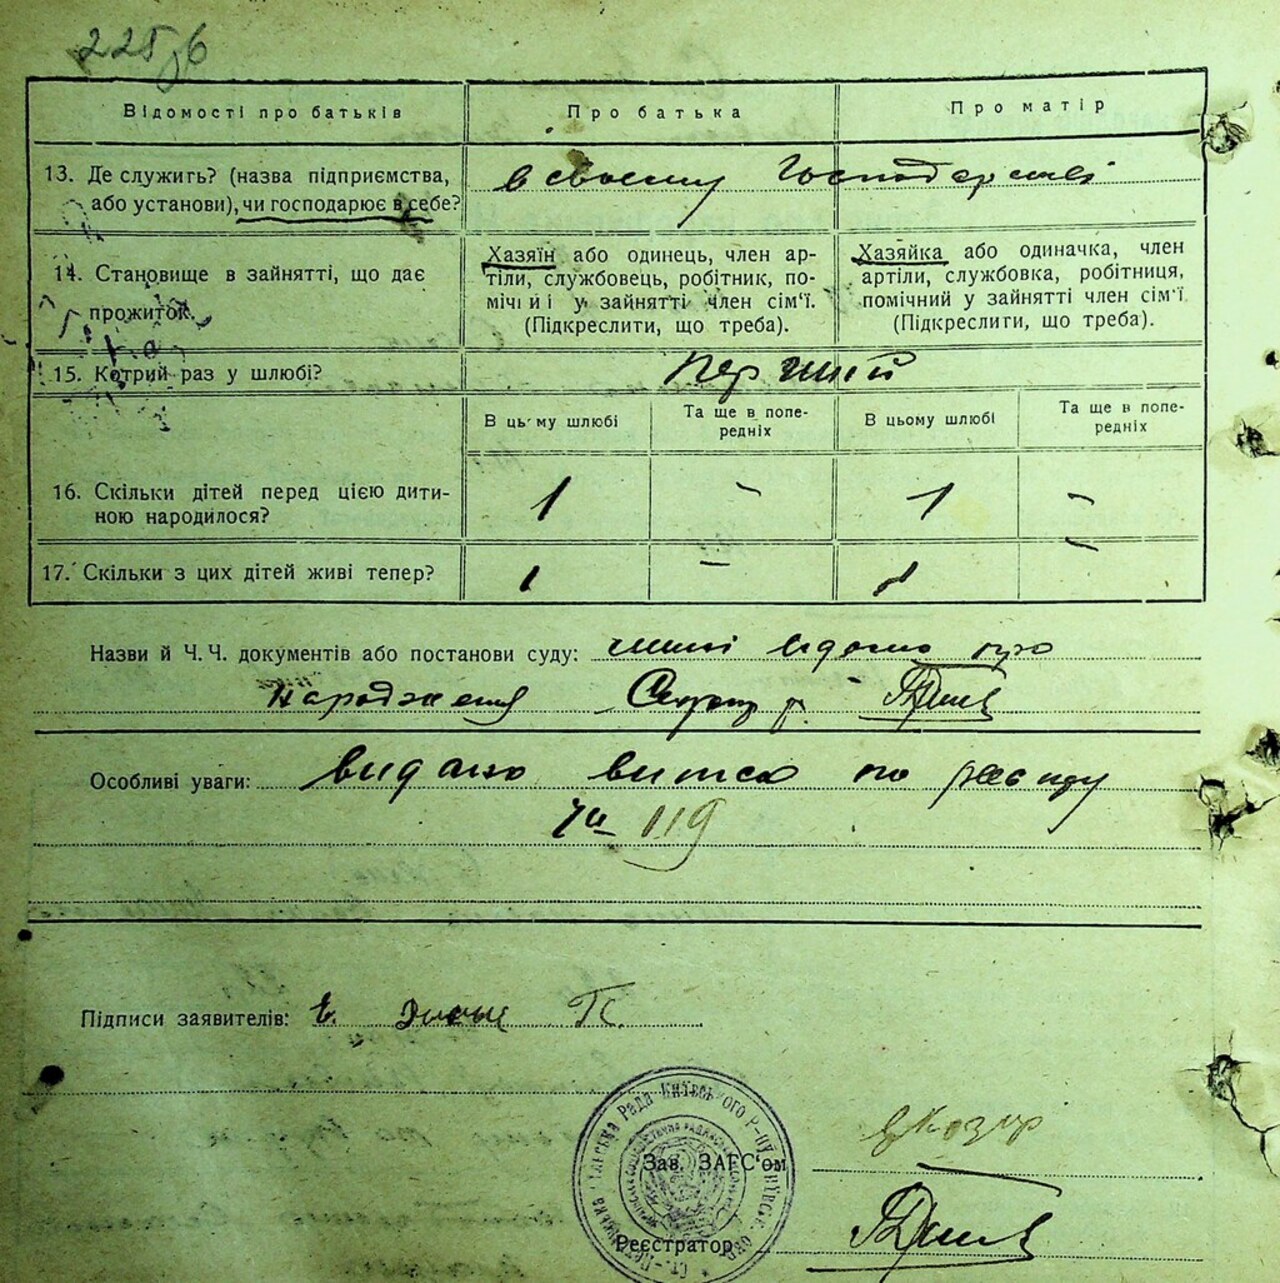 Відомості про батьків Про батька Про матір
13. Де служить? (назва підприємства, або установи), чи господарює в себе?
в своєму господарстві
14. Становище в зайнятті, що дає прожиток.
Хазяїн або одинець, член ар-
тіли, службовець, робітник, по-
мічний у зайнятті член сім'ї.
(Підкреслити, що треба).
Хазяйка або одиначка, член
артіли, службовка, робітниця,
помічний у зайнятті член сім'ї
(Підкреслити, що треба).
15. Котрий раз у шлюбі? перший
В цьому шлюбі Та ще в попе-редніх В цьому шлюбі Та ще в попе-редніх
16. Скільки дітей перед цією дити-
ною народилося? 1 – 1 –
17. Скільки з цих дітей живі тепер? 1 – 1 –
Назви й Ч.Ч. документів або постанови суду: про
народження
Особливі уваги: видано витяг по
119
Підписи заявителів:
Рада Київського р-ну
Зав. ЗАГС'ом
Реєстратор